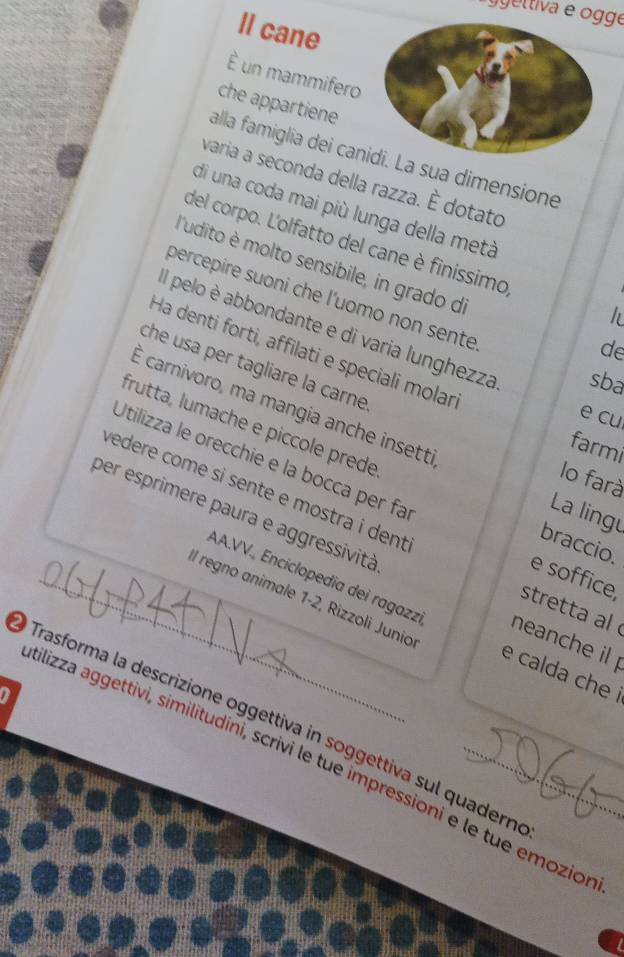 e ogge
Il cane
È un mammifero
che appartiene
alla famiglia dei canidi. La sua dimensione
varia a seconda della razza. È dotato
di una coda mai più lunga della metà
del corpo. L'olfatto del cane è finissimo,
l'udito è molto sensibile, in grado di
percepire suoni che l'uomo non sente.
Il pelo è abbondante e di varia lunghezza.
Ha denti forti, affilati e speciali molari
che usa per tagliare la carne.
È carnivoro, ma mangia anche insetti,
frutta, lumache e piccole prede.
Utilizza le orecchie e la bocca per far
vedere come si sente e mostra i denti
per esprimere paura e aggressività.
AA.VV., Enciclopedia dei ragazzi,
Il regno animale 1-2, Rizzoli Junior
de
sba
e cu
farmi
lo farà
La lingu
braccio.
e soffice,
stretta al
neanche il p
e calda che i
SOGG
2 Trasforma la descrizione oggettiva in soggettiva sul quaderno:
utilizza aggettivi, similitudini, scrivi le tue impressioni e le tue emozioni.